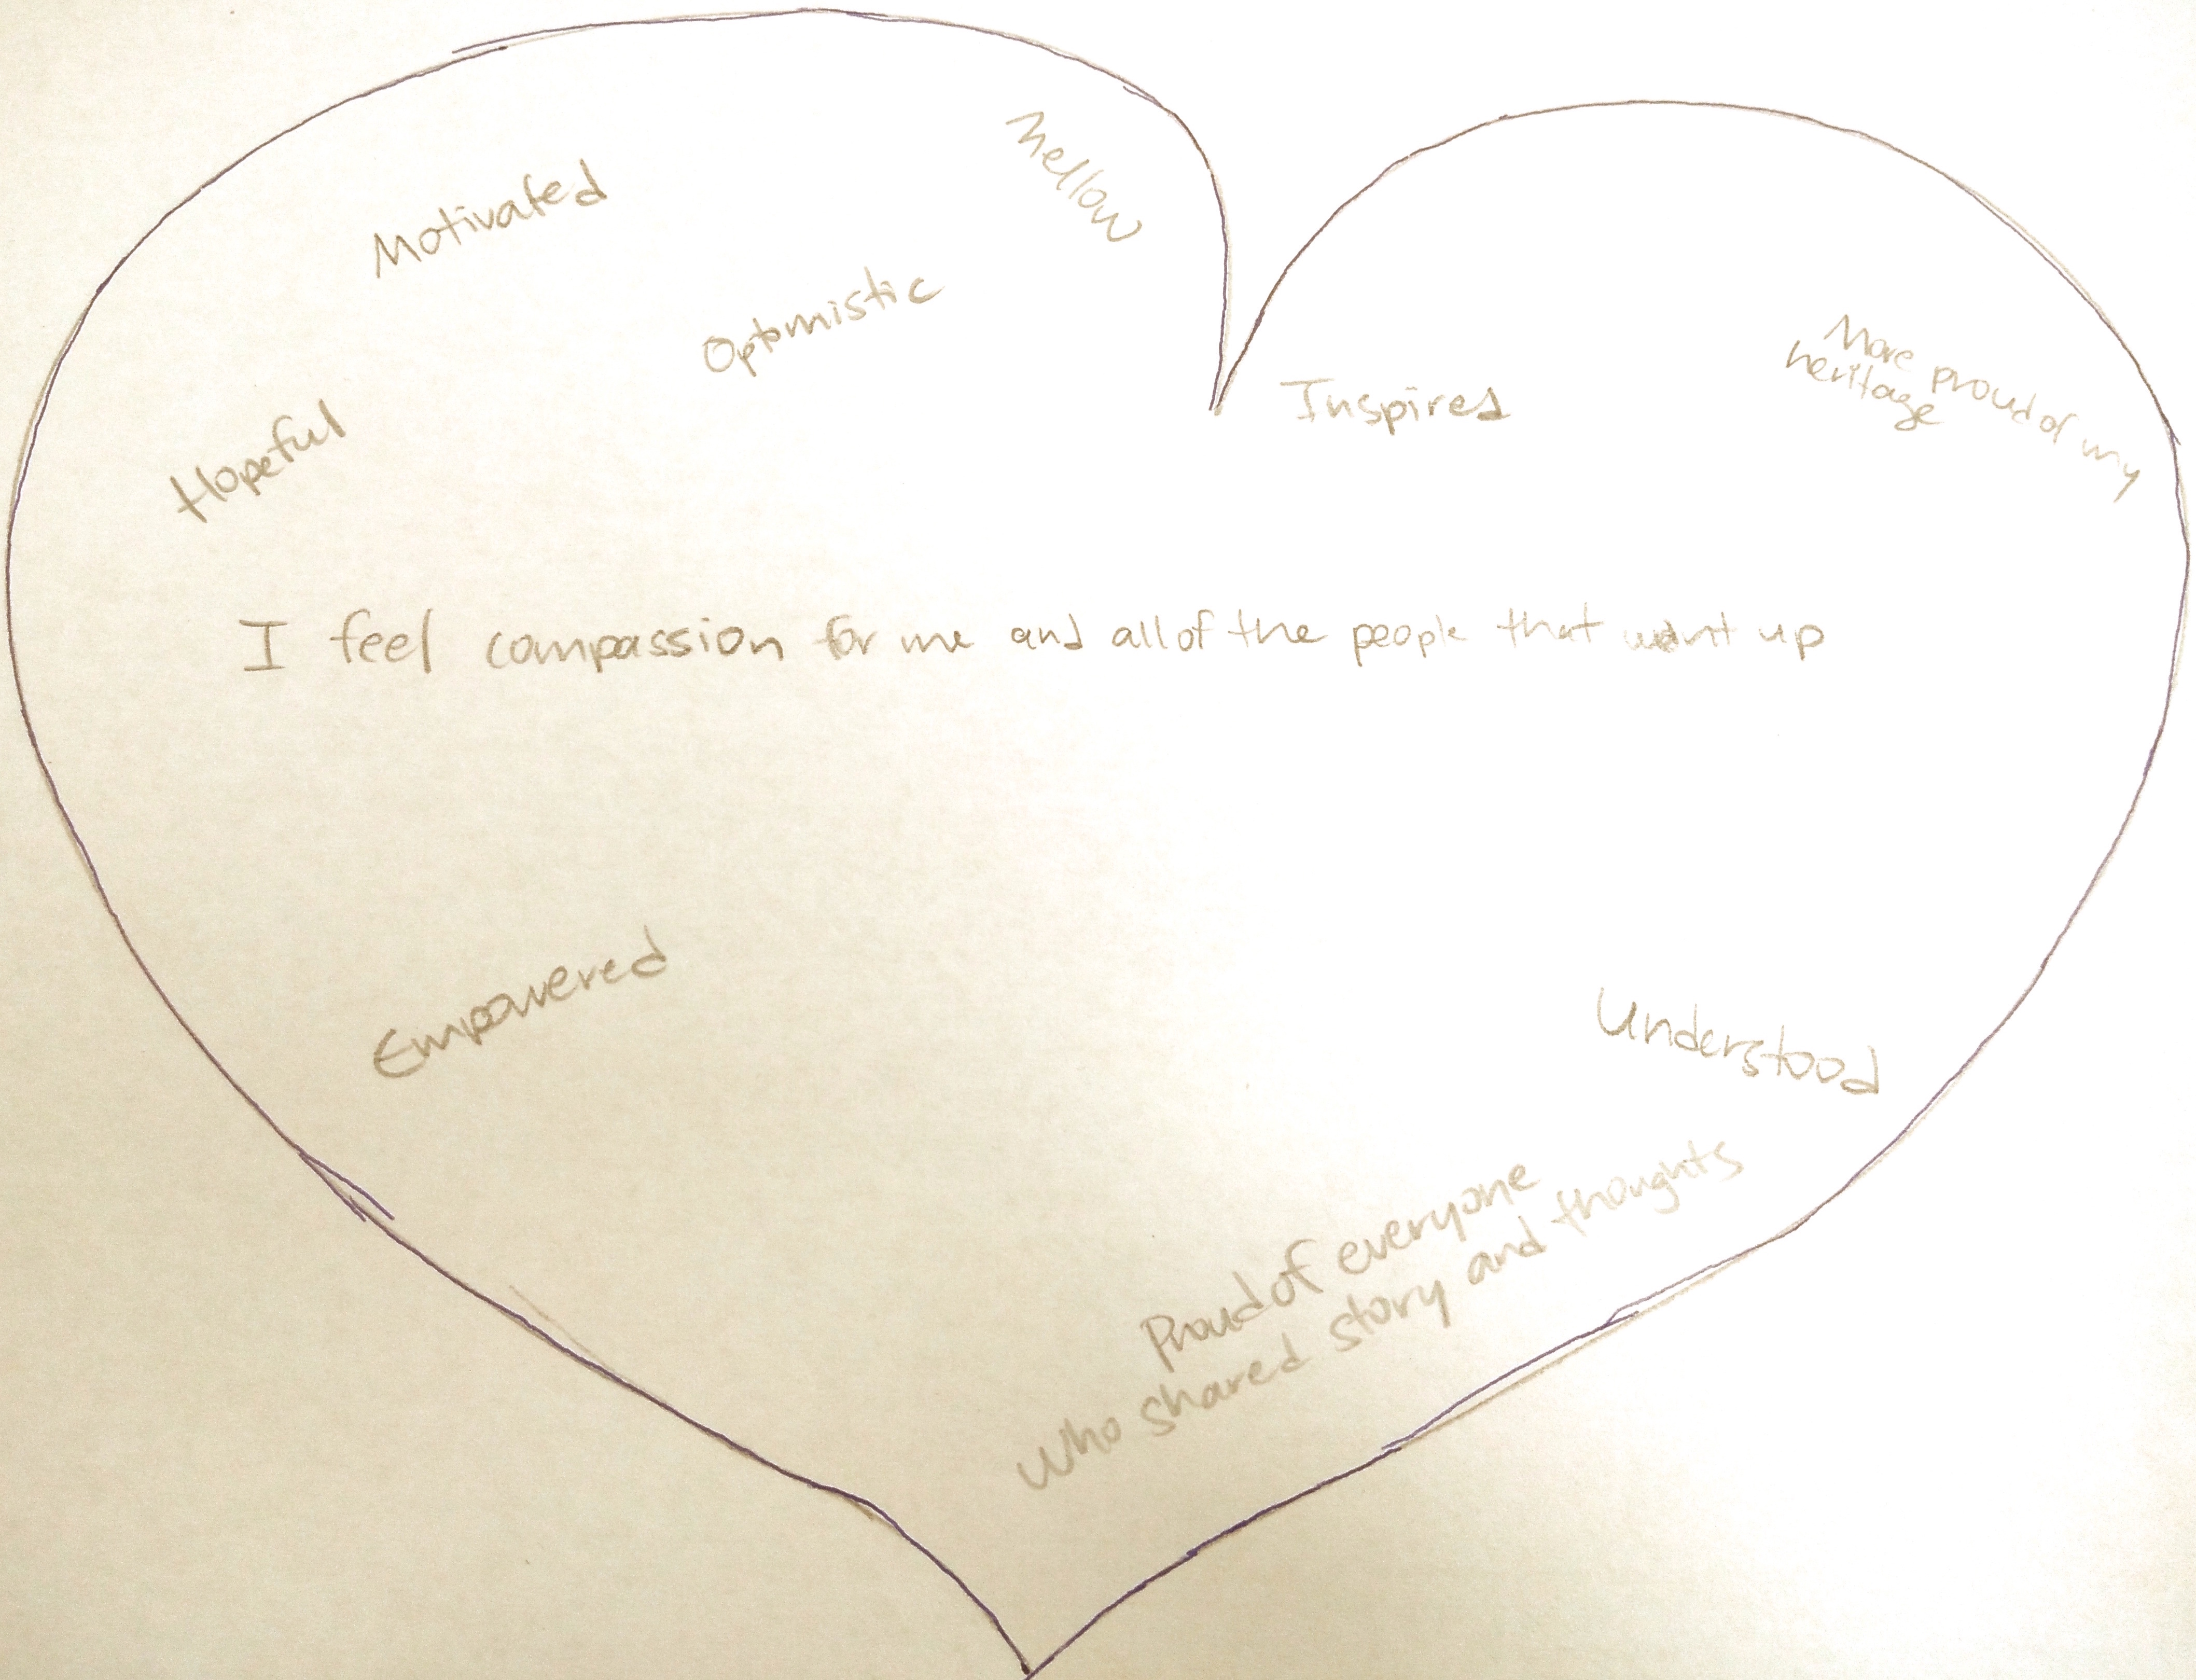 Mellow
Motivated
Optomistic
More proud of my
heritage
Inspired
Hopeful
I feel compassion for me and all of the people that went up
Empowered
Understood
Proud of everyone
who shared story and thoughts